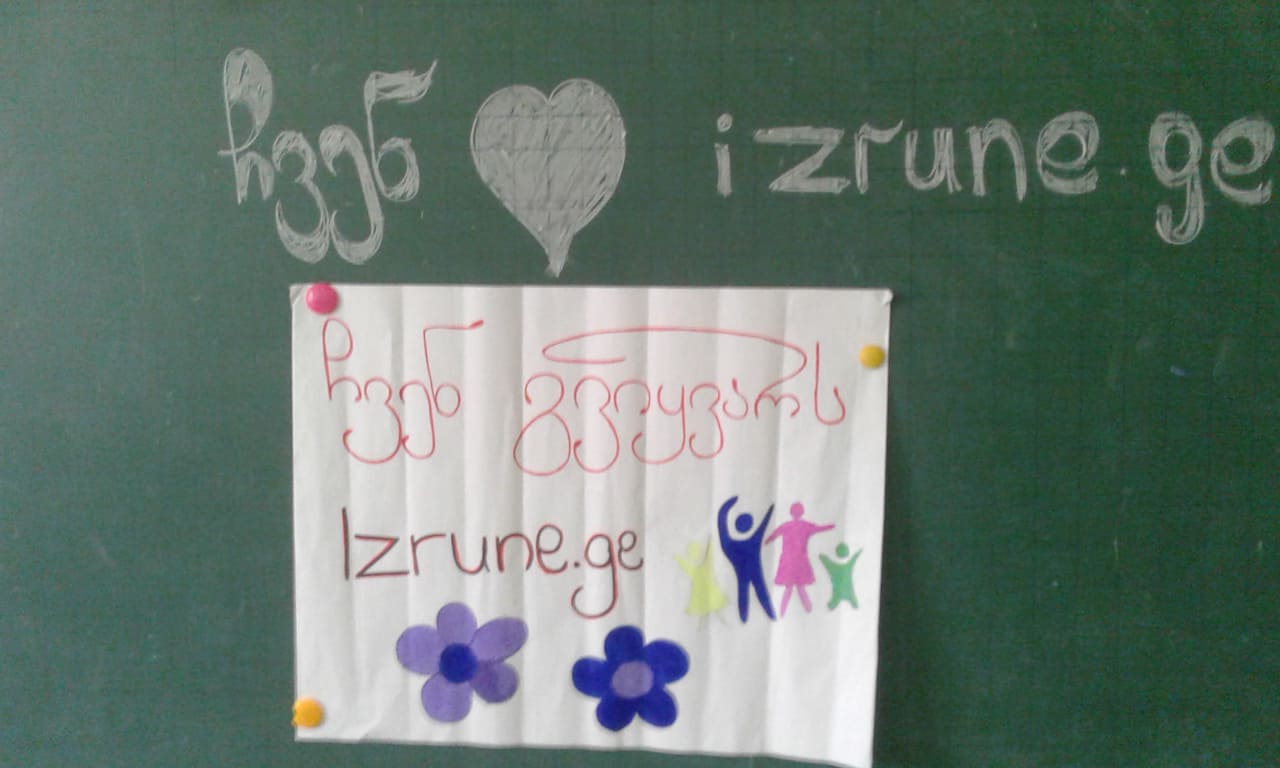 ჩვენ ♥ izrune.ge
ჩვენ გვიყვარს
Izrune.ge